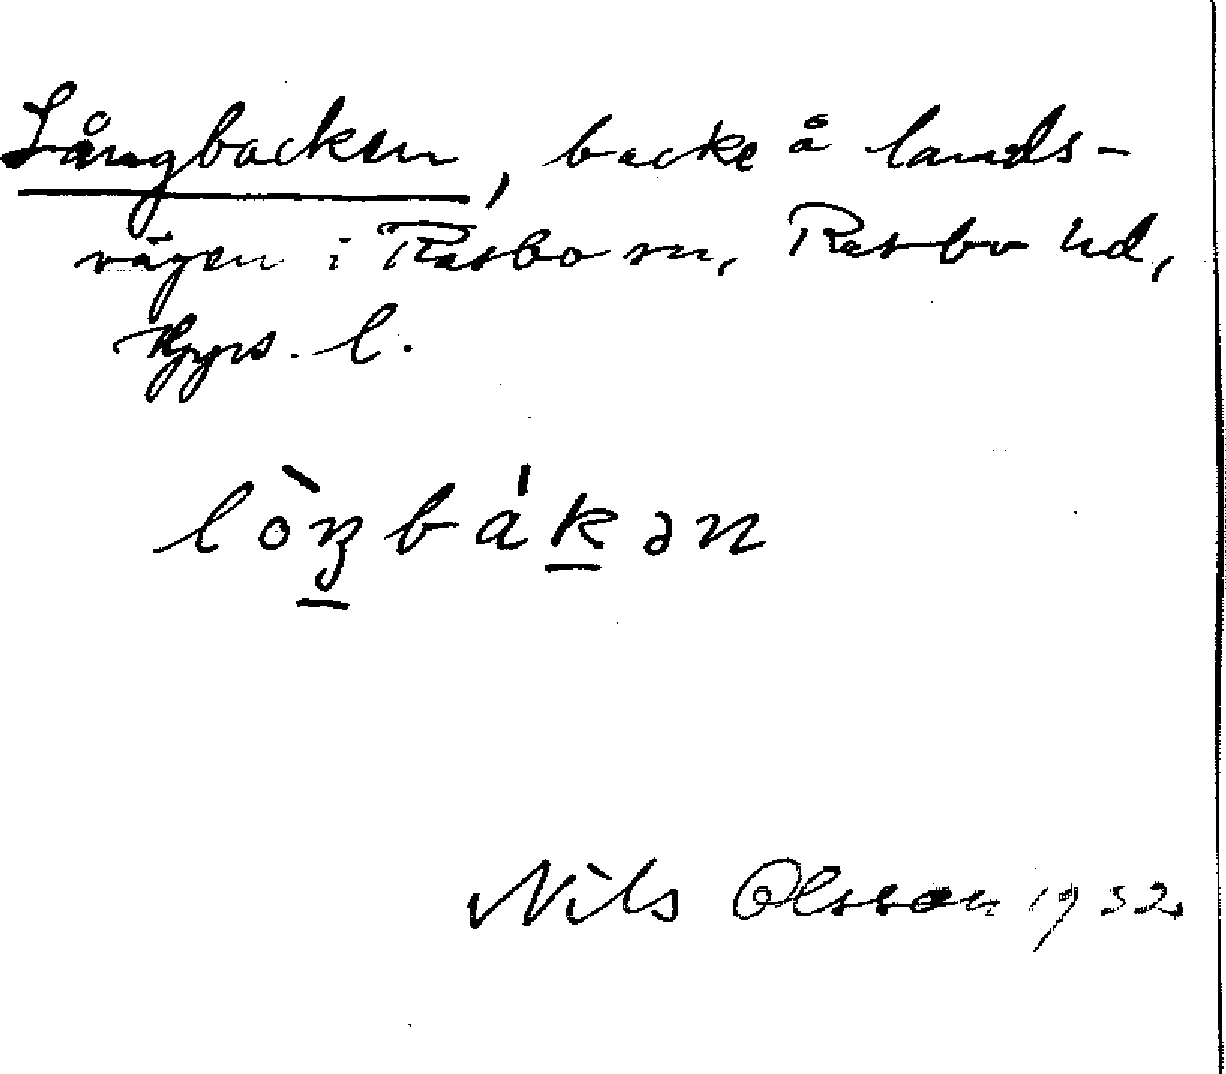 Långbacken, backe å lands-
vägen i Rasbo sn, Rasbo hd,
Upps. l.
lòŋbákən
Nils Olsson 1932